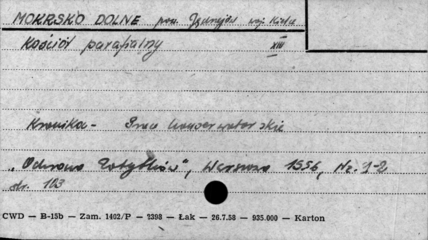 MOKRSKO DOLNE pow. Jędrzejów woj. Kielce
Kościół parafialny XIII
Kronika - Prace konserwatorskie
„Ochrona Zabytków", Warszawa 1956, Nr. 1-2
str. 103
CWD — B-15b — Zam. 1402/P — 7398 — Łak — 26.7.58 — 935.000 — Karton